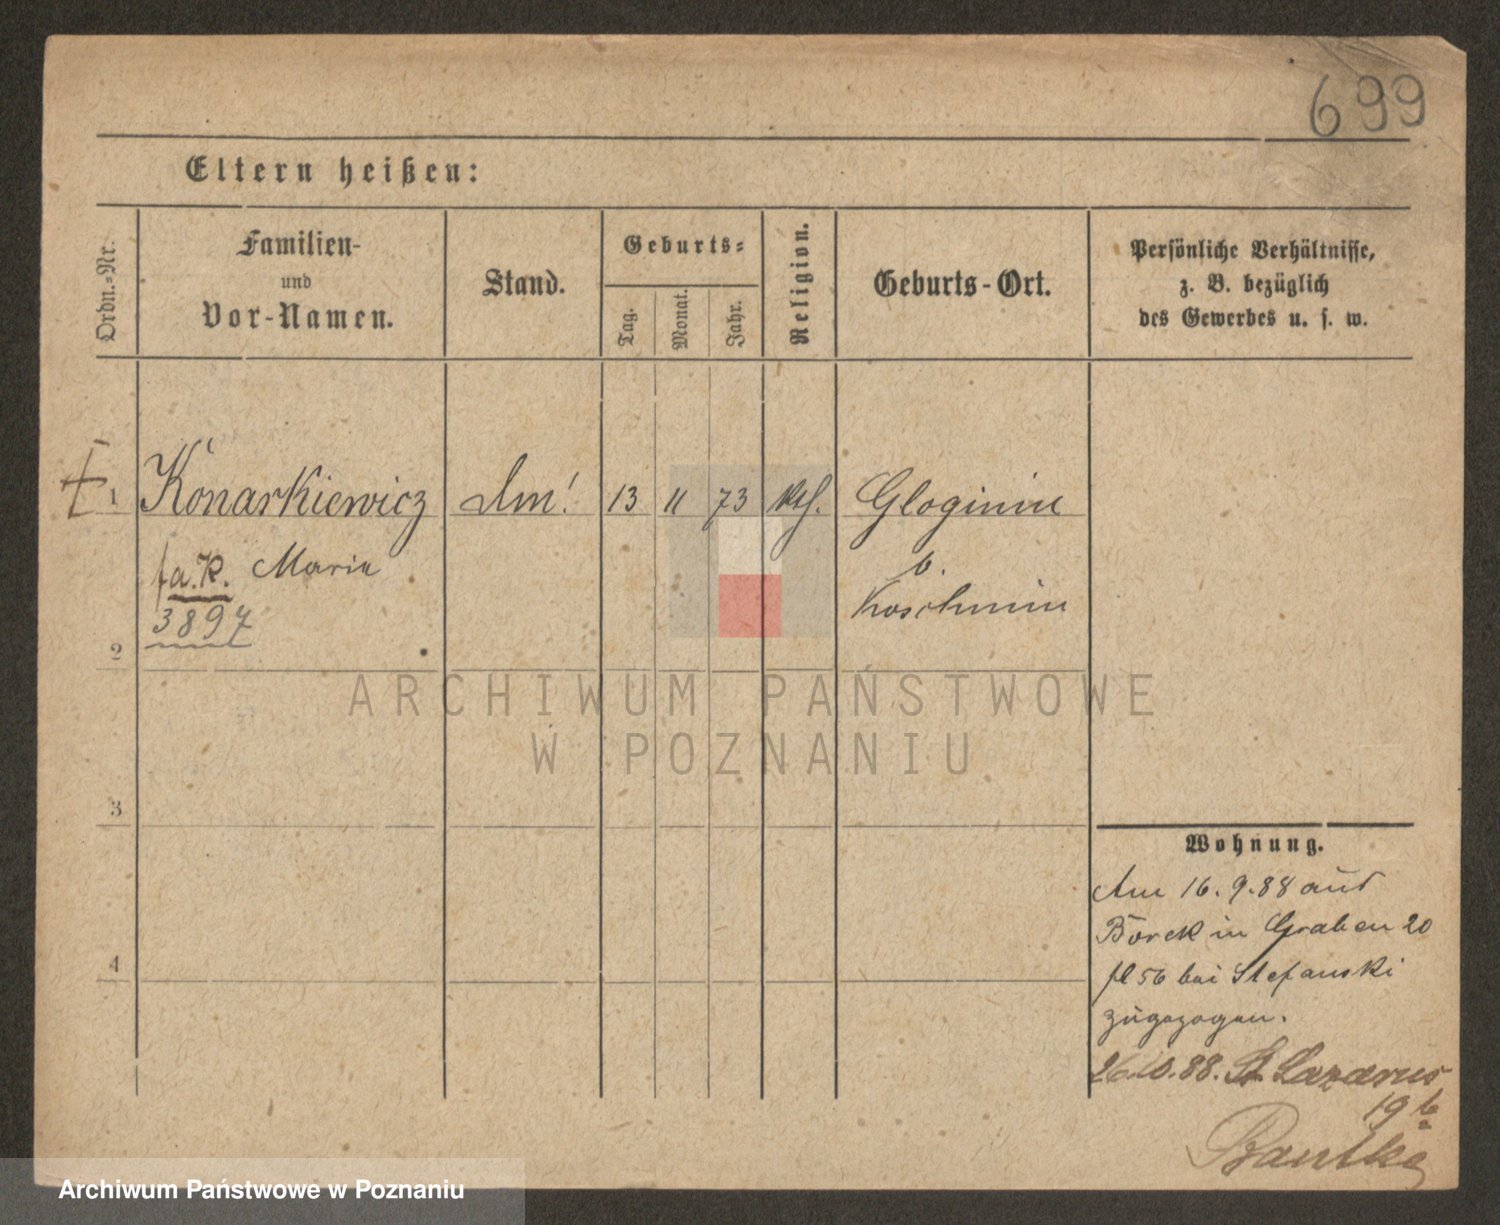 699
Eltern heißen:
Ordn.-Nr.
Familien-
und
Vor-Namen.
Stand.
Geburts-
Tag.
Monat.
Jahr.
Religion.
Geburts-Ort.
Persönliche Verhältnisse,
z. B. bezüglich
des Gewerbes u. s. w.
1 Konarkiewicz 13 11 73 kth. Gloginin
Marie b.
3897 Koschmin
2
3
4
ARCHIWUM PAŃSTWOWE
W POZNANIU
Wohnung.
Am 16.9.88 aus
Borek in Graben 20
bei Stefanski
zugezogen.
26.10.88. St Lazarus
19b
Archiwum Państwowe w Poznaniu